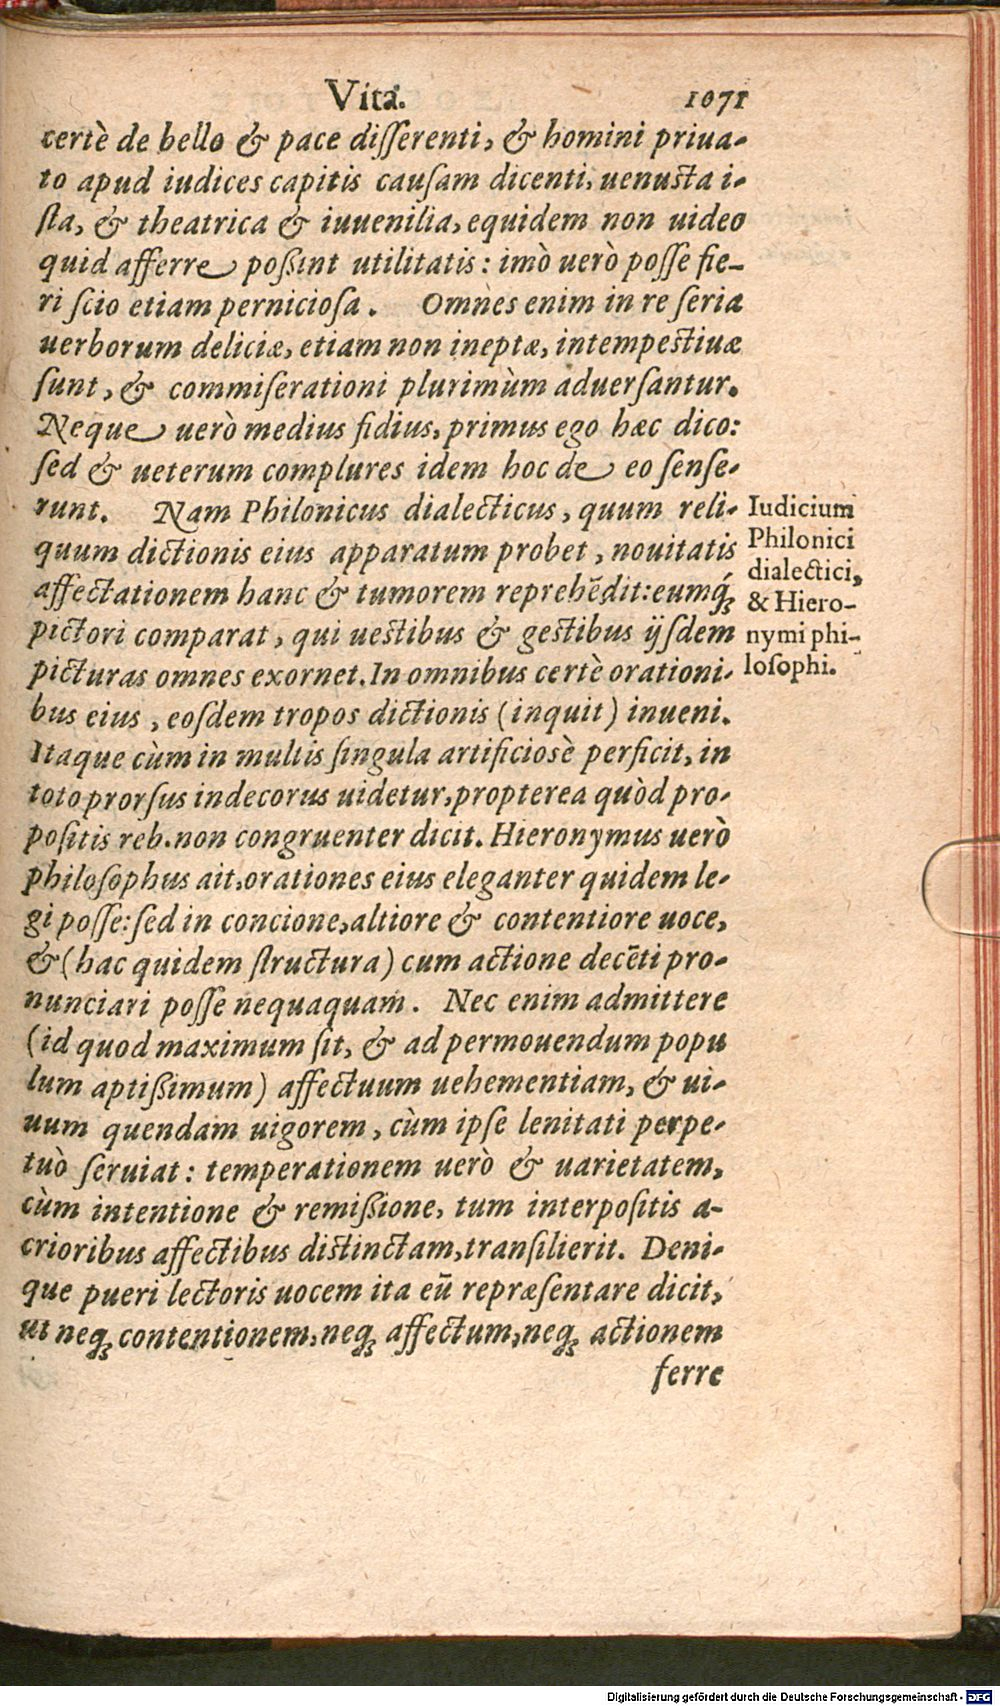 Vita. 1071
certè de bello & pace disserenti, & homini priua-
to apud iudices capitis causam dicenti, uenusta i-
sta, & theatrica & iuuenilia, equidem non uideo
quid afferre possint utilitatis: imò uerò posse fie-
ri scio etiam perniciosa. Omnes enim in re seria
uerborum deliciæ, etiam non ineptæ, intempestiuæ
sunt, & commiserationi plurimùm aduersantur.
Neque uerò medius fidius, primus ego hæc dico:
sed & ueterum complures idem hoc de eo sense-
runt. Nam Philonicus dialecticus, quum reli-
quum dictionis eius apparatum probet, nouitatis
affectationem hanc & tumorem reprehẽdit: eumq́;
pictori comparat, qui uestibus & gestibus ijsdem
picturas omnes exornet. In omnibus certè orationi-
bus eius, eosdem tropos dictionis (inquit) inueni.
Itaque cùm in multis singula artificiosè perficit, in
toto prorsus indecorus uidetur, propterea quòd pro-
positis reb. non congruenter dicit. Hieronymus uerò
philosophus ait, orationes eius eleganter quidem le-
gi posse: sed in concione, altiore & contentiore uoce,
& (hac quidem structura) cum actione decẽti pro-
nunciari posse nequaquam. Nec enim admittere
(id quod maximum sit, & ad permouendum popu
lum aptissimum) affectuum uehementiam, & ui-
uum quendam uigorem, cùm ipse lenitati perpe-
tuò seruiat: temperationem uerò & uarietatem,
cùm intentione & remissione, tum interpositis a-
crioribus affectibus distinctam, transilierit. Deni-
que pueri lectoris uocem ita eũ repræsentare dicit,
ut neq; contentionem, neq; affectum, neq; actionem
ferre
Iudicium
Philonici
dialectici,
& Hiero-
nymi phi-
losophi.
Digitalisierung gefördert durch die Deutsche Forschungsgemeinschaft - DFG